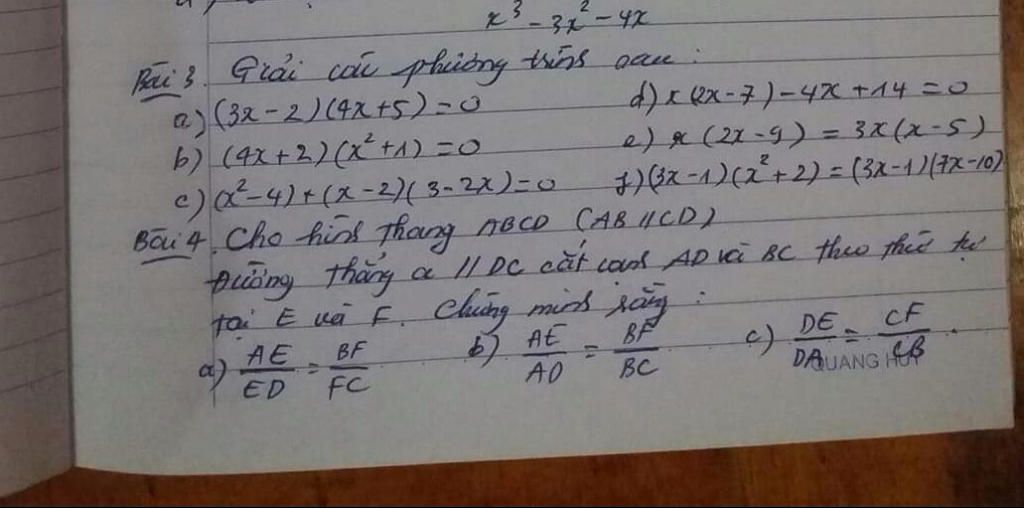 x³ - 3x² - 4x
Bài 3. Giải các phương trình sau :
a) (3x - 2)(4x + 5) = 0 d) x(2x - 7) - 4x + 14 = 0
b) (4x + 2)(x² + 1) = 0 e) x(2x - 9) = 3x(x - 5)
c) (x² - 4) + (x - 2)(3 - 2x) = 0 f) (3x - 1)(x² + 2) = (3x - 1)(7x - 10)
Bài 4. Cho hình thang ABCD (AB // CD)
Đường thẳng a // DC cắt cạnh AD và BC theo thứ tự
tại E và F. Chứng minh rằng :
a) AE/ED = BF/FC b) AE/AD = BF/BC c) DE/DA = CF/CB .
QUANG HUY